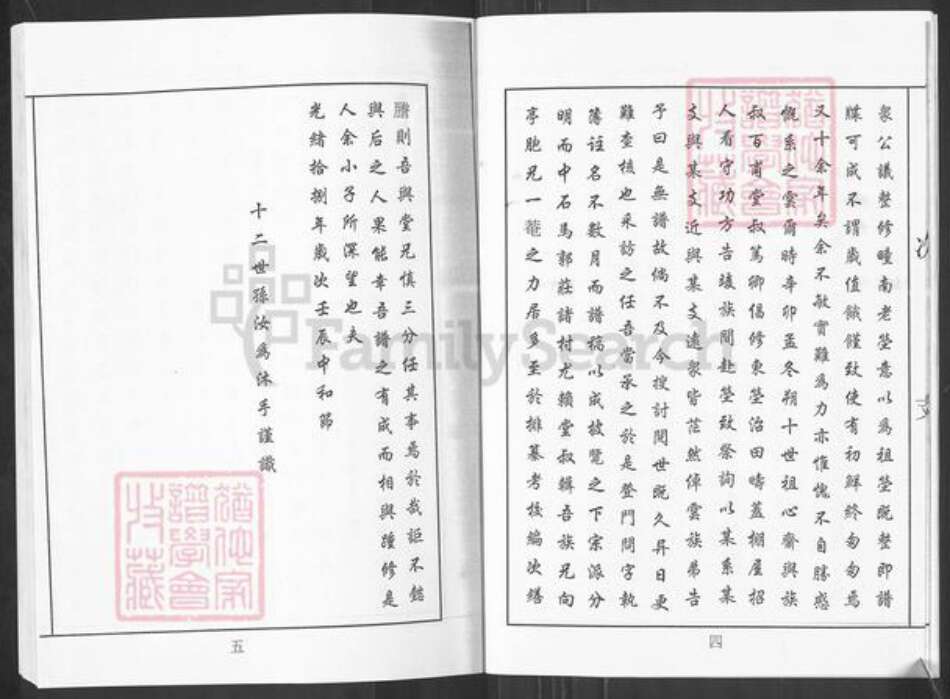 衆公議整修疃南老塋意以為祖塋既整即譜
牒可成不謂歲值饑饉致使有初鮮終匆匆焉
又十余年矣余不敏實難為力亦惟愧不自勝感
慨系之雲爾時辛卯孟冬朔十世祖心齋與族
叔百甫堂叔篤卿倡修東塋治田疇蓋棚屋招
人看守功方告竣族間赴塋致祭詢以某系某
支與某支近與某支遠衆皆茫然倬雲族弟告
予曰是無譜故倘不及今搜討閱世既久异日更
難查核也采訪之任吾當承之於是登門問字執
簿註名不數月而譜稿以成披覽之下宗派分
明而中石馬郭莊諸村尤賴堂叔輯吾族兄向
亭胞兄一菴之力居多至於排纂考校編次繕
謄則吾與堂兄慎三分任其事焉於哉詎不懿
與后之人果能幸吾譜之有成而相與踵修是
人余小子所深望也夫
光緒拾捌年歲次壬辰中和節
十二世孫汝為沐手謹識
四
五
FamilySearch